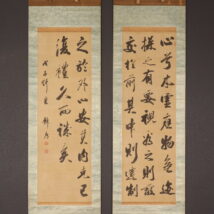 心兮本虛應物無迹
操之有要視為之則蔽
交於前其中則遷制
之於外以安其内克己
復禮久而誠矣
戊子